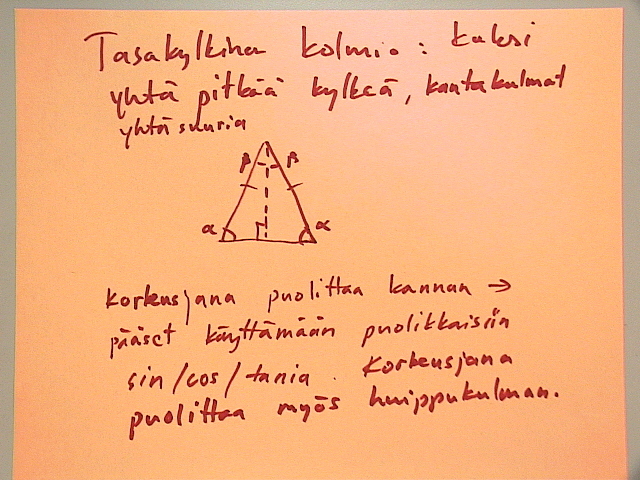 Tasakylkinen kolmio: kaksi
yhtä pitkää kylkeä, kantakulmat
yhtä suuria
β β
α α
korkeusjana puolittaa kannan →
pääset käyttämään puolikkaisiin
sin/cos/tania. Korkeusjana
puolittaa myös huippukulman.